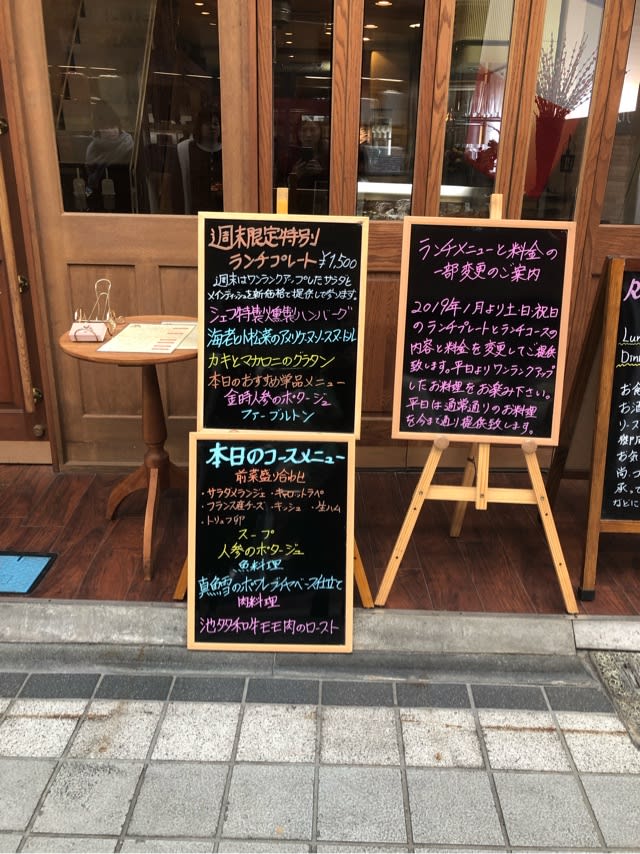 週末限定特別
ランチプレート ¥1,500
週末はワンランクアップしたサラダと
メインディッシュを新価格で提供して参ります。
シェフ特製燻製ハンバーグ
海老と小松菜のアメリケーヌソースヌードル
カキとマカロニのグラタン
本日のおすすめ単品メニュー
金時人参のポタージュ
ファーブルトン
本日のコースメニュー
前菜盛り合わせ
・サラダメランジェ ・キャロットラペ
・フランス産チーズ ・キッシュ ・生ハム
・トリュフリア
スープ
人参のポタージュ
魚料理
真鱈のポワレブイヤベース仕立て
肉料理
池タタ和牛モモ肉のロースト
ランチメニューと料金の
一部変更のご案内
2019年1月より土日祝日
のランチプレートとランチコースの
内容と料金を変更してご提供
致します。平日よりワンランクアップ
したお料理をお楽み下さい。
平日は通常通りのお料理
を今まで通り提供致します。
Lun
Dinn
お食
お酒
リース
お気
尚つ
承って
などに